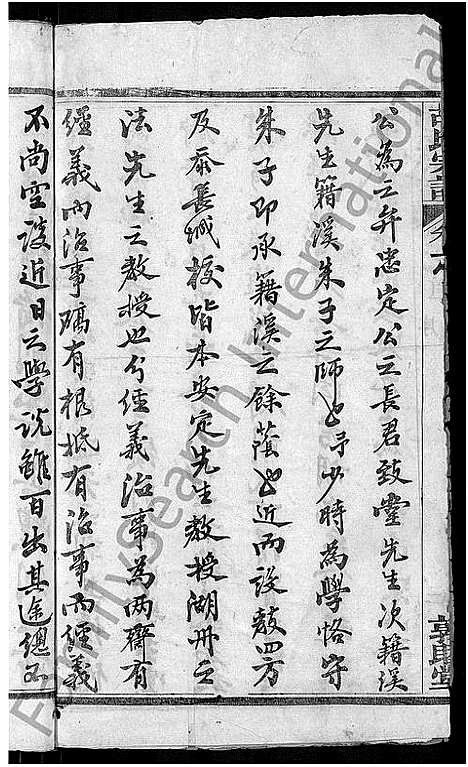 胡氏宗譜
公為之弁忠定公之長君致堂先生次籍溪
先生籍溪朱子之師也予少時為學恪守
朱子即承籍溪之餘蔭也近而設教四方
及忝長城校皆本安定先生教授湖州之
法先生之教授也分經義治事為兩齋有
經義而治事確有根柢有治事而經義
不尚空談近日之學說雖百出其途總不
FamilySearch International